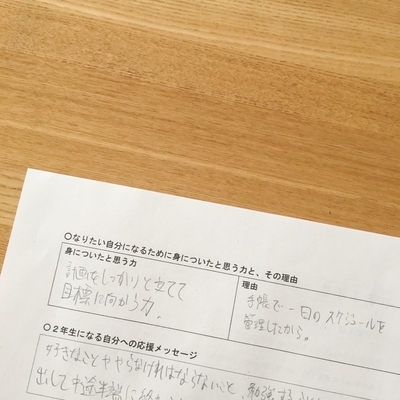 ○なりたい自分になるために身についたと思う力と、その理由
身についたと思う力
計画をしっかりと立てて
目標に向かう力。
理由
手帳で一日のスケジュールを
管理したから。
○２年生になる自分への応援メッセージ
好きなことややらなければならないこと、勉強する
出して中途半端に